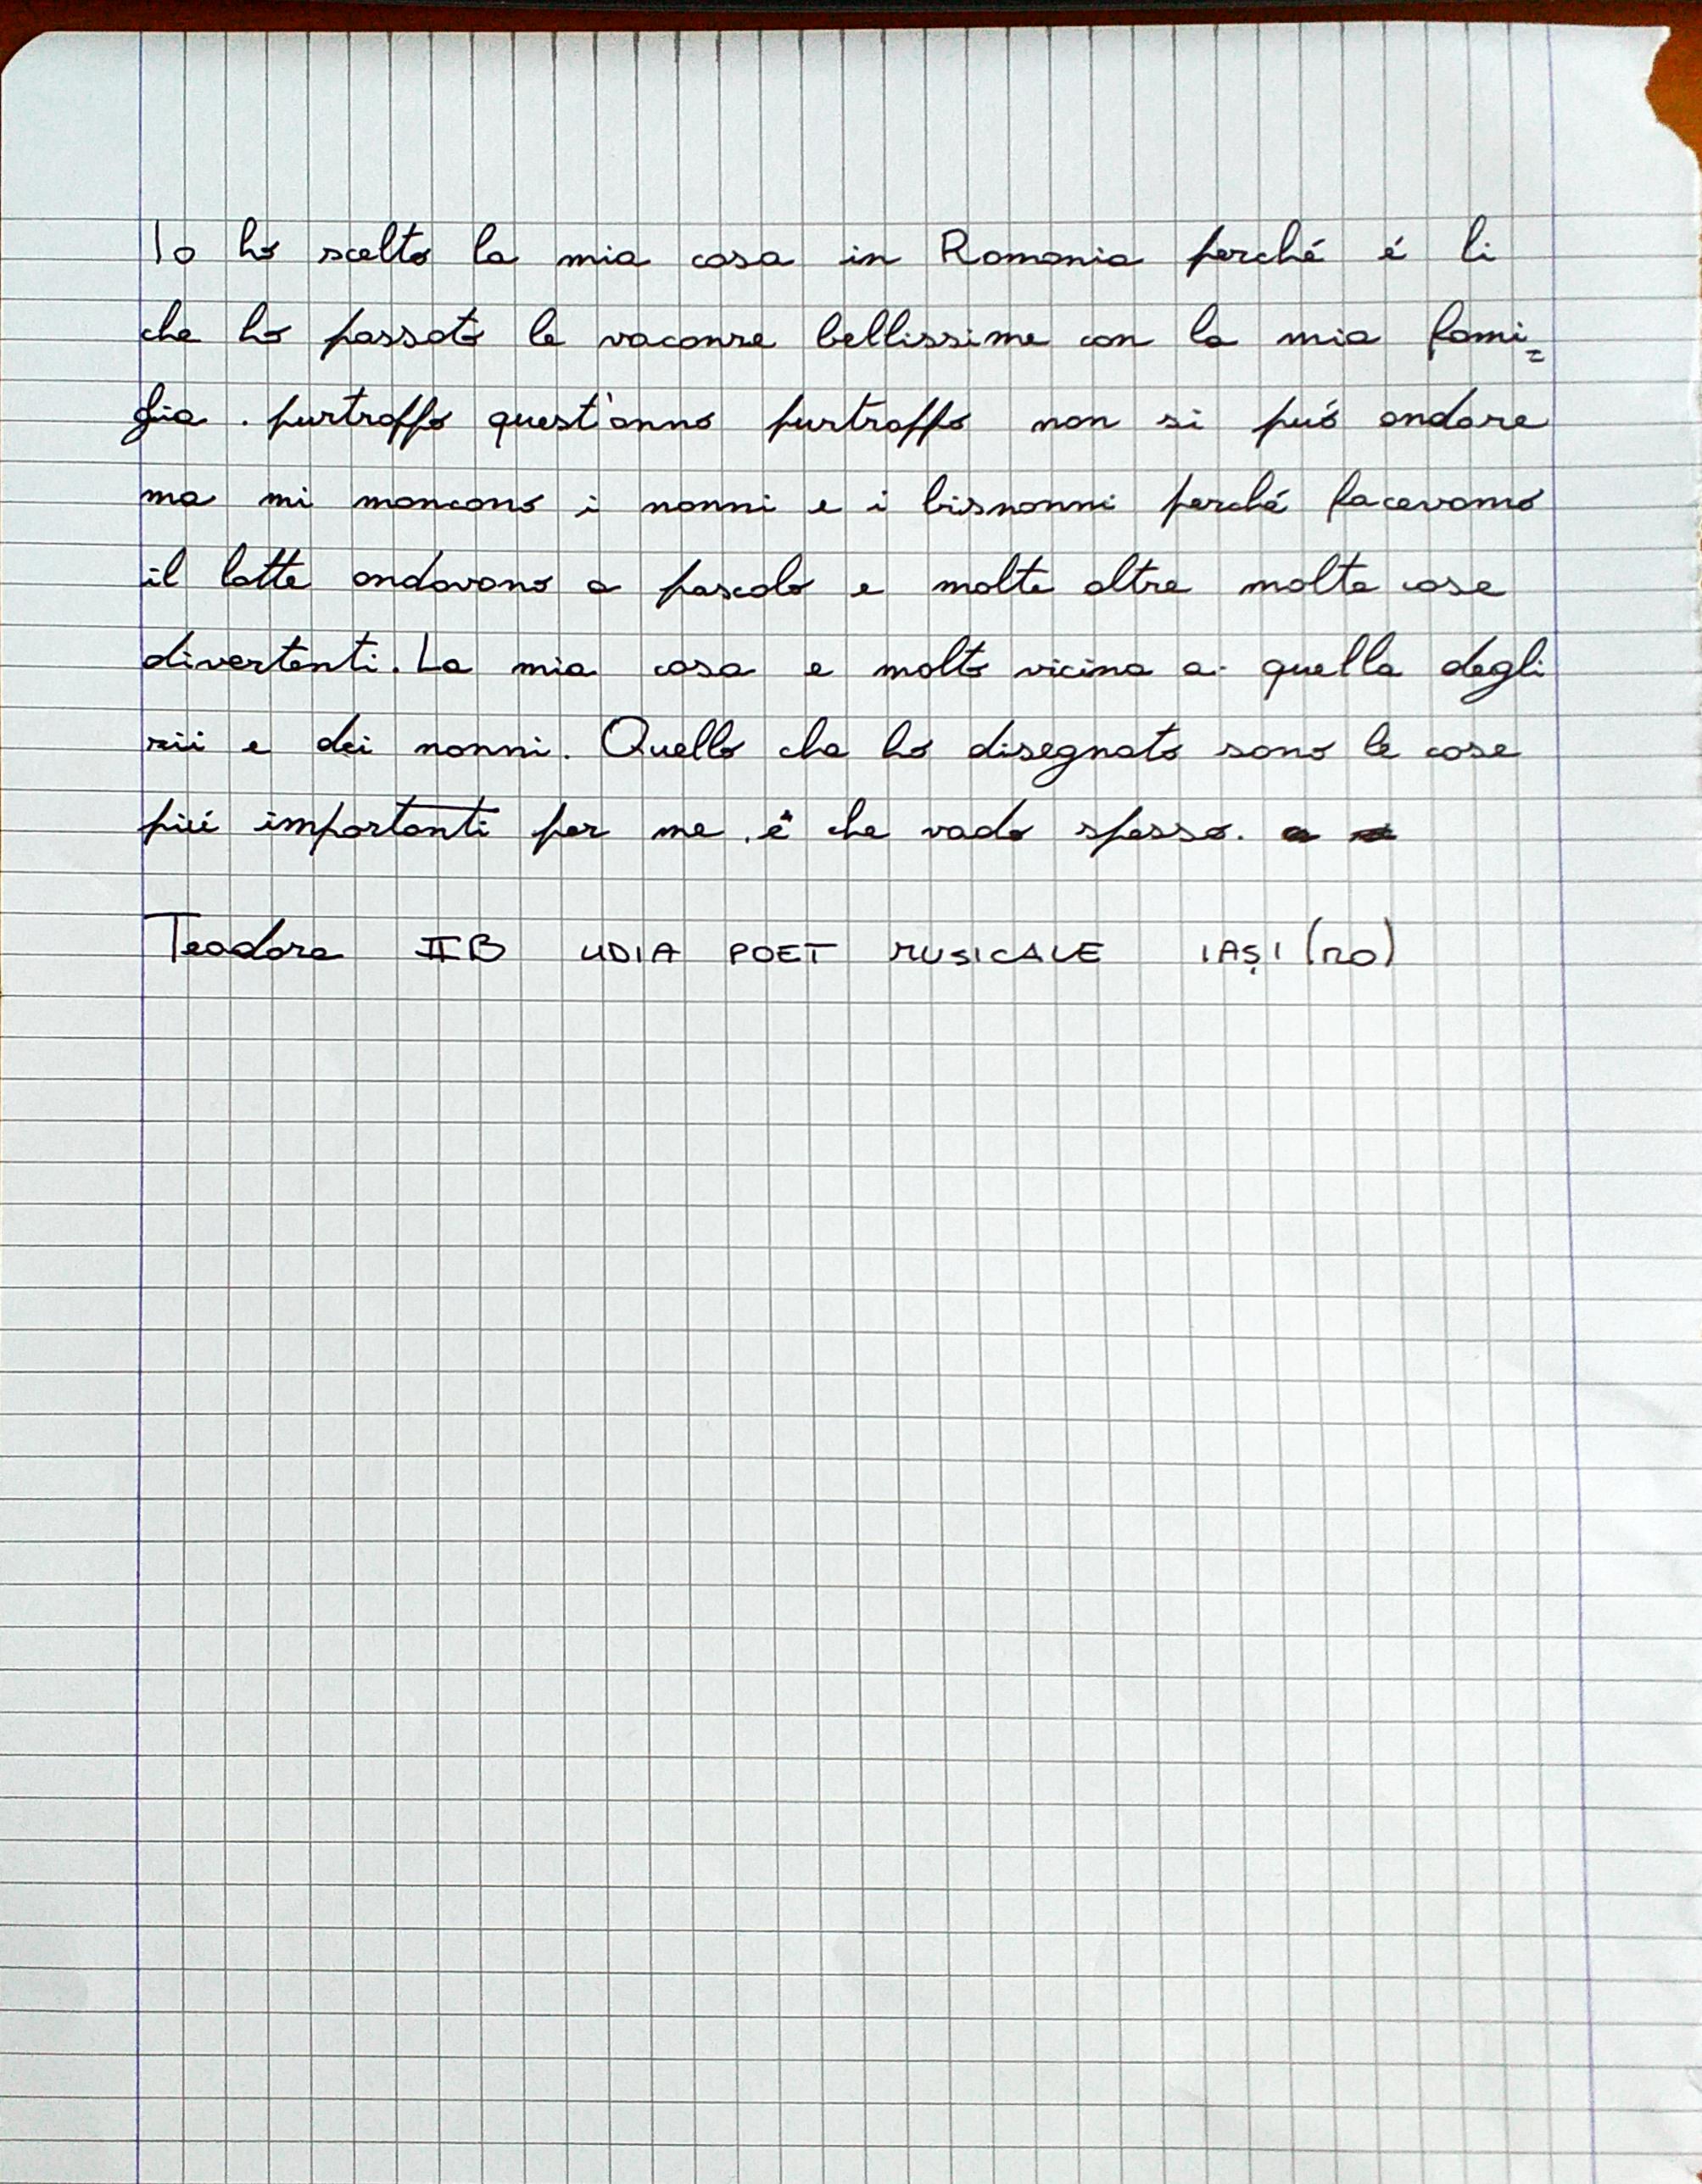 Io ho scelto la mia casa in Romania perché é li
che ho passato le vacanze bellissime con la mia fami=
glia. purtroppo quest'anno purtroppo non si puó andare
ma mi mancano i nonni e i bisnonni perché facevamo
il latte andavano a pascolo e molte altre molte cose
divertenti. La mia casa e molto vicina a quella degli
zii e dei nonni. Quello che ho disegnato sono le cose
piú importanti per me. é che vado spesso.
Teodora IIB LIDIA POET MUSICALE IAȘI (RO)